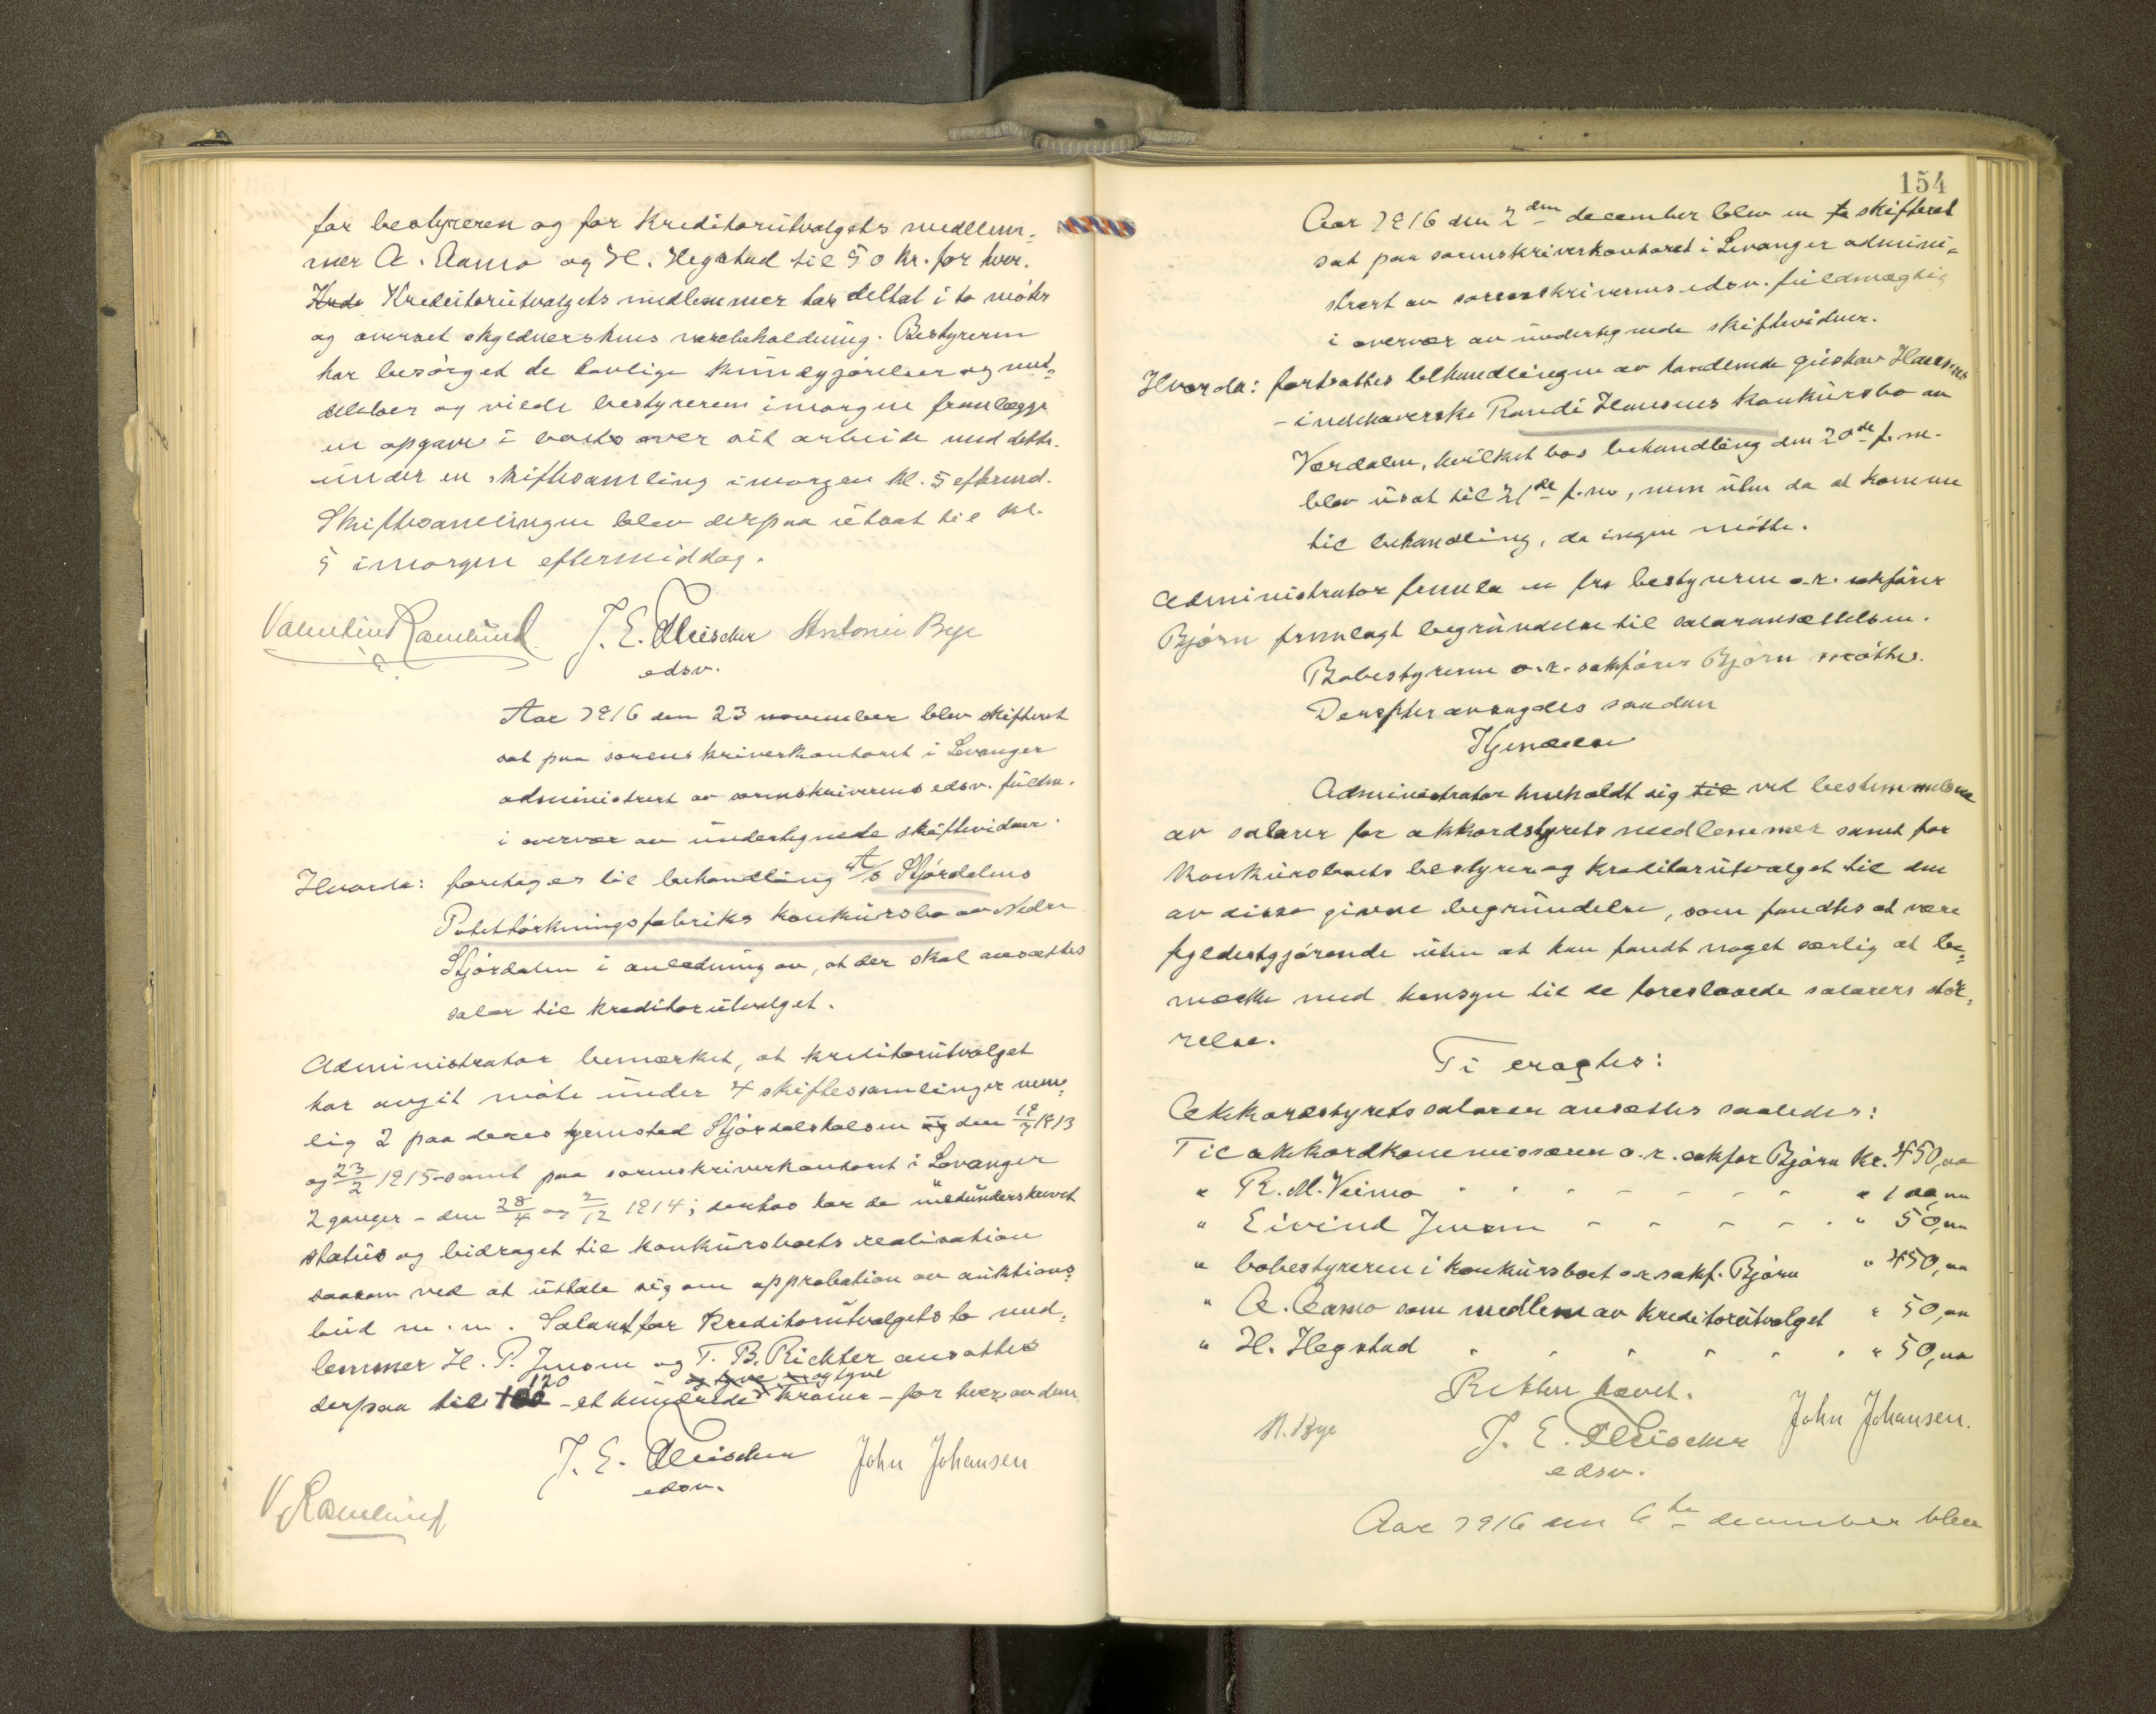 for bestyreren og for kreditorutvalgets medlem=
mer A. Aamo og H. Hegstad til 50 kr. for hver.
Krede Kreditorutvalgets medlemmer har deltat i to møter
og overset skyldnerskens varebeholdning. Bestyreren
har besørget de lovlige kundgjørelser og med=
delelser og vilde bestyreren imorgen fremlægge
en opgave i boets over sit arbeide med dette
under en skiftesamling imorgen kl. 5 eftermd.
Skiftesamlingen blev derpaa utsat til kl.
5 imorgen eftermiddag.
Valentin Ramlund J. E. Fleischer Antonie Bye
edsv.
Aar 1916 den 23 november blev skifteret
sat paa sorenskriverkontoret i Levanger
administrert av sorenskriverens edsv. fuldm.
i overvær av undertegnede skiftevidner.
Hvorda: foretages til behandling A/S Stjørdalens
Potettørkningsfabriks konkursbo av Nedre
Stjørdalen i anledning av, at der skal ansættes
salær til kreditorutvalget.
Administrator bemærket, at kreditorutvalget
har avgit møte under 4 skiftessamlinger nem=
lig 2 paa deres hjemsted Stjørdalshalsen og den 12/7 1913
og 23/2 1915 - samt paa sorenskriverkontoret i Levanger
2 ganger - den 28/4 og 2/12 1914; derhos har de medunderskrevet
status og bidraget til konkursboets realisation
saasom ved at uttale sig om approbation av auktions=
bud m. m. Salæret for Kreditorutvalgets to med=
lemmer H. P. Jensen og T. B. Richter ansattes
120 og tyve og tyve
derpaa til 100 - et hundrede kroner - for hver av dem
J. E. Fleischer John Johansen
edsv.
V. Ramlund
154
Aar 1916 den 2den december blev en fo skifteret
sat paa sorenskriverkontoret i Levanger admini=
strert av sorenskriverens edsv. fuldmægtig
i overvær av undertegnede skiftevidner.
Hvorda: fortsattes behandlingen av handlende Gustav Hansens
- indehaverske Randi Hansens konkursbo av
Værdalen, hvilket bos behandling den 20de f. m.
blev utsat til 21de f. m., men uten da at komme
til behandling, da ingen møtte.
Administrator fremla en fra bestyreren o.r. sakfører
Bjørn fremlagt begrundelse til salæransættelsen.
Bobestyreren o.r. sakfører Bjørn møtte.
Derefter avsagdes saadan
Kjendelse
Administrator henholdt sig til ved bestemmelsene
av salærer for akkordstyrets medlemmer samt for
konkursboets bestyrer og kreditorutvalget til den
av disse givne begrundelse, som fandtes at være
fyldestgjørende uten at han fandt noget særlig at be=
mærke med hensyn til de foreslaaede salærers stør=
relse.
Ti eragtes:
Akkordstyrets salærer ansættes saaledes:
Til akkordkommissæren o.r. sakfør Bjørn kr. 450,oo
" R. M. Veimo - - - - - - " 100,oo
" Eivind Jensen - - - - - " 50,oo
" bobestyreren i konkursboet o.r. sakf. Bjørn " 450,oo
" A. Aamo som medlem av kreditorutvalget " 50,oo
" H. Hegstad - - - - - - " 50,oo
Retten hævet.
A. Bye J. E. Fleischer John Johansen.
edsv.
Aar 1916 den 6te december blev